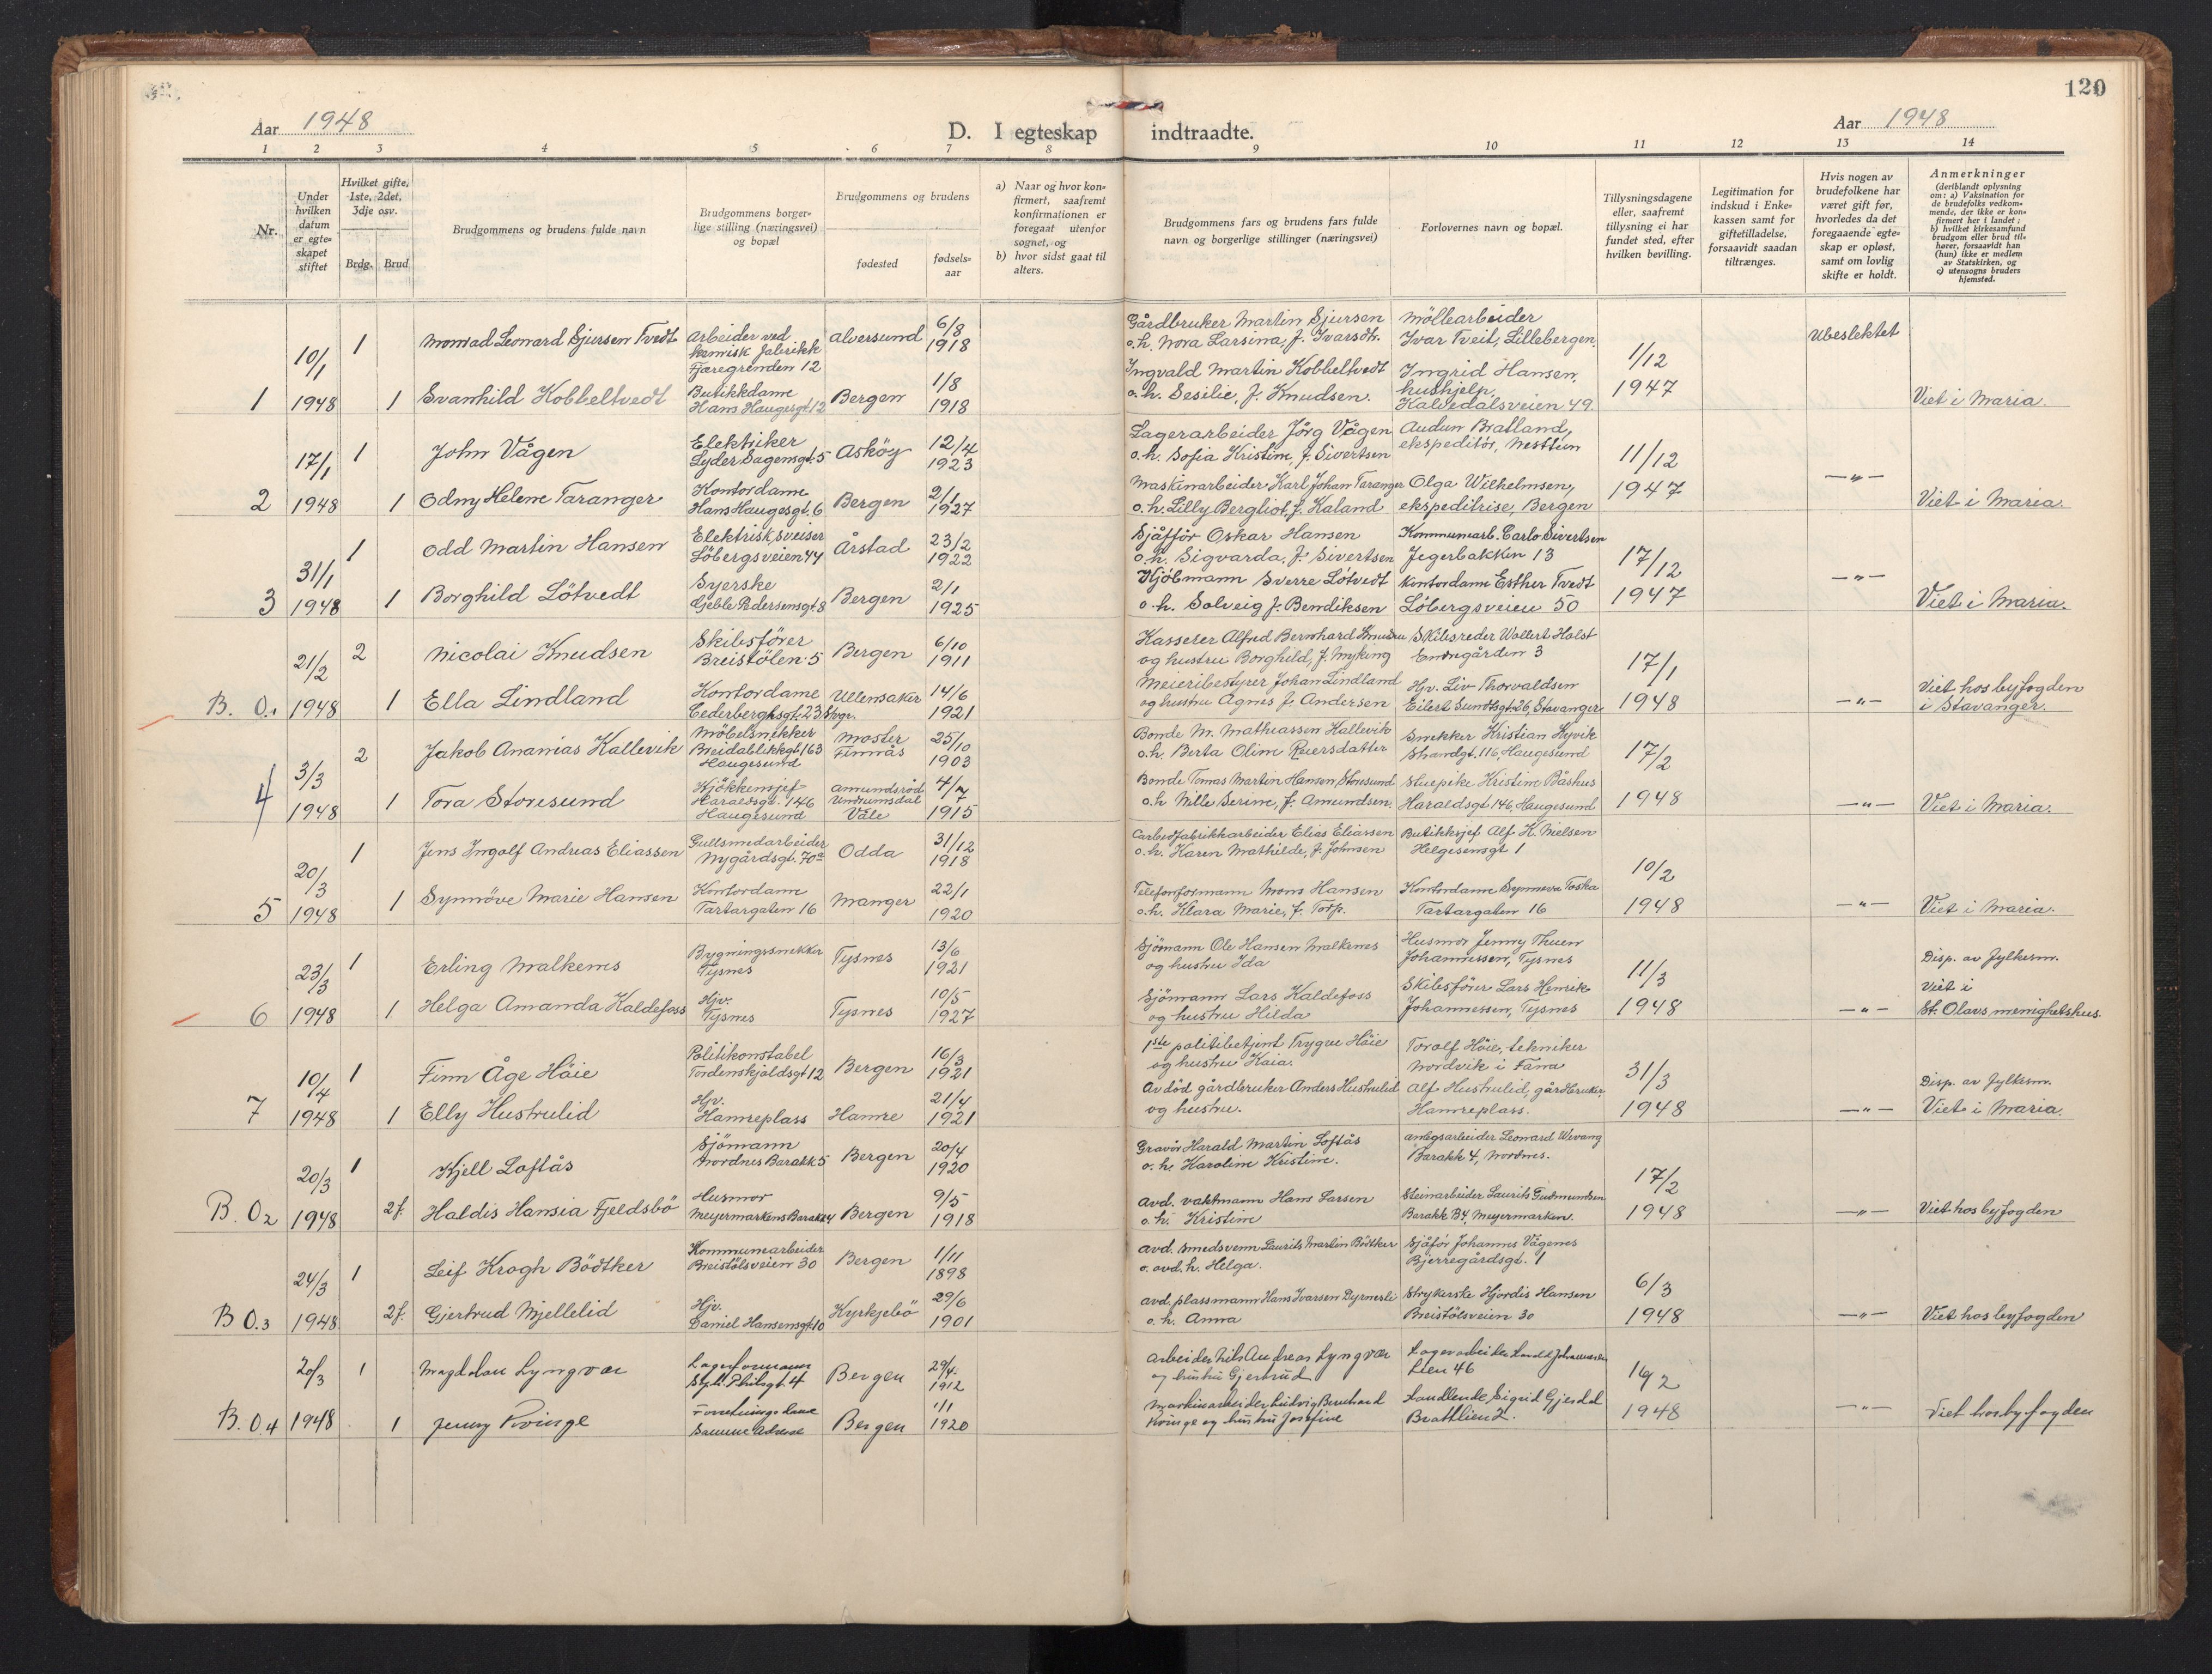 120
Aar 1948
D. I egteskap indtraadte.
Aar 1948
1 2 3 4 5 6 7 8 9 10 11 12 13 14
Nr.
Under hvilken datum er egteskapet stiftet
Hvilket gifte, 1ste, 2det, 3dje osv.
Brdg. Brud
Brudgommens og brudens fulde navn
Brudgommens borgerlige stilling (næringsvei) og bopæl
Brudgommens og brudens
fødested
fødselsaar
a) Naar og hvor konfirmert, saafremt konfirmationen er foregaat utenfor sognet, og
b) hvor sidst gaat til alters.
Brudgommens fars og brudens fars fulde navn og borgerlige stillinger (næringsvei)
Forlovernes navn og bopæl.
Tillysningsdagene eller, saafremt tillysning ei har fundet sted, efter hvilken bevilling.
Legitimation for indskud i Enkekassen samt for giftetilladelse, forsaavidt saadan tiltrænges.
Hvis nogen av brudefolkene har været gift før, hvorledes da det foregaaende egteskap er opløst, samt om lovlig skifte er holdt.
Anmerkninger
(deriblandt oplysning om: a) Vaksination for de brudefolks vedkommende, der ikke er konfirmert her i landet; b) hvilket kirkesamfund brudgom eller brud tilhører, forsaavidt han (hun) ikke er medlem av Statskirken, og c) utensogns bruders hjemsted.
10/1 1 Monrad Leonard Sjursen Tvedt Arbeider ved kemisk fabrikk Fjæregrenden 12 Alversund 6/8 1918 Gårdbruker Martin Sjursen o.h. Nora Larsina, f. Ivarsdtr. Möllearbeider Ivar Tveit, Lillebergen. Ubeslektet
1 1948 1 Svanhild Kobbeltvedt Butikkdame Hans Haugesgt. 12 Bergen 1/8 1918 Ingvald Martin Kobbeltvedt o.h. Sesilie, f. Knudsen. Ingrid Hansen, hushjelp, Kalvedalsveien 49 1/12 1947 Viet i Maria.
17/1 1 John Vågen Elektriker Lyder Sagensgt. 5 Asköy 12/4 1923 Lagerarbeider Jörg Vågen o.h. Sofia Kristine, f. Sivertsen Audun Bratland, ekspeditör, Nesttun
2 1948 1 Odny Helene Taranger Kontordame Hans Haugesgt. 6 Bergen 2/1 1927 Maskinarbeider Karl Johan Taranger o.h. Lilly Bergliot, f. Kaland Olga Wilhelmsen, ekspeditrise, Bergen 11/12 1947 —"— Viet i Maria.
31/1 1 Odd Martin Hansen Elektrisk sveiser Löbergsveien 44 Årstad 23/2 1922 Sjåfför Oskar Hansen o.h. Sigvarda, f. Sivertsen Kommunearb. Carlo Sivertsen Jegerbakken 13
3 1948 1 Borghild Lötvedt Syerske Geble Pedersensgt. 8 Bergen 2/1 1925 Kjöbmann Sverre Lötvedt o.h. Solveig f. Bendiksen Kontordame Esther Tvedt Löbergsveien 50 17/12 1947 —"— Viet i Maria.
21/2 2 Nicolai Knudsen Skibsförer Breistölen 5 Bergen 6/10 1911 Kasserer Alfred Bernhard Knudsen og hustru Borghild, f. Myking Skibsreder Wollert Holst Endregården 3
B. O.1 1948 1 Ella Lindland Kontordame Cederberghsgt. 23 Stvgr. Ullensaker 14/6 1921 Meieribestyrer Johan Lindland og hustru Agnes f. Andersen Hjv. Liv Thorvaldsen Eilert Sundtsgt. 26, Stavanger 17/1 1948 —"— Viet hos byfogden i Stavanger.
2 Jakob Ananias Kallevik Möbelsnekker Breidablikkgt 163 Haugesund Moster Finnås 25/10 1903 Bonde M. Mathiassen Kallevik o.h. Berta Oline Reiersdatter Snekker Kristian Kyvik Strandgt. 116, Haugesund
4 3/3 1948 1 Tora Storesund Kjökkensjef Haraldsgt. 146 Haugesund Amundsröd Undrumsdal Våle 4/7 1915 Bonde Tomas Martin Hansen Storesund o.h Nille Serine, f. Amundsen. Stuepike Kristine Båshus Haraldsgt 146, Haugesund 17/2 1948 —"— Viet i Maria.
1 Jens Ingolf Andreas Eliassen Gullsmedarbeider Nygårdsgt. 70a Odda 31/12 1918 Carbidfabrikkarbeider Elias Eliassen o.h. Karen Mathilde, f. Johnsen Butikksjef Alf K. Nielsen Helgesensgt 1
5 20/3 1948 1 Synnöve Marie Hansen Kontordame Tartargaten 16 Manger 22/1 1920 Telefonformann Mons Hansen o.h. Klara Marie, f. Torp. Kontordame Synneva Toska Tartargaten 16 10/2 1948 —"— Viet i Maria.
23/3 1 Erling Malkenes Bygningssnekker Tysnes Tysnes 13/6 1921 Sjömann Ole Hansen Malkenes og hustru Ida Husmor Jenny Thuen Johannessen, Tysnes Disp. av fylkesm.
6 1948 1 Helga Amanda Kaldefoss Hjv. Tysnes Tysnes 10/5 1927 Sjömann Lars Kaldefoss og hustru Hilda Skibsförer Lars Henrik Johannessen, Tysnes 11/3 1948 —"— Viet i St. Olavs menighetshus.
10/4 1 Finn Åge Höie Politikonstabel Tordenskjoldsgt 12 Bergen 16/3 1921 1ste politibetjent Trygve Höie og hustru Kaia. Torolf Höie, tekniker Nordvik i Fana
7 1948 1 Elly Hustrulid Hjv. Hamreplass Hamre 21/4 1921 Av död gårdbruker Anders Hustrulid og hustru. Alf Hustrulid, gårdbruker, Hamreplass. 31/3 1948 —"— Disp. av fylkesm. Viet i Maria.
20/3 1 Kjell Loftås Sjömann Nordnes Barakk 5 Bergen 20/4 1920 Gravör Harald Martin Loftås o.h. Karoline Kristine. Anlegsarbeider Leonard Wevang Barakk 4, Nordnes.
B. O2 1948 2f. Haldis Hansia Fjeldsbö Husmor Meyermarkens Barakk 4 Bergen 9/5 1918 Avd. vaktmann Hans Larsen o.h. Kristine Steinarbeider Laurits Gudmundsen Barakk B4, Meyermarken. 17/2 1948 —"— Viet hos byfogden
24/3 1 Leif Krogh Bödtker Kommunearbeider Breistölsveien 30 Bergen 1/11 1898 Avd. smedsvenn Laurits Martin Bödtker o. avd. h. Helga. Sjåför Johannes Vågenes Bjerregårdsgt. 1
B O.3 1948 2f. Gjertrud Mjellelid Hjv. Daniel Hansensgt. 10 Kyrkjebö 29/6 1901 avd. plassmann Hans Ivarsen Dyrnesli o. h. Anna Strykerske Hjördis Hansen Breistölsveien 30 6/3 1948 —"— Viet hos byfogden
20/3 1 Magdalon Lyngvær Lagerformann Bergen 29/4. 1912 Arbeider Nils Andreas Lyngvær og hustru Gjertrud Lien 46
B. O4 1948 1 Jenny Kvinge Forretningsdame Samme Adresse Bergen 1/1 1920 Maskinarbeider Ludvig Bernhard Kvinge og hustru Josefine Sigrid Gjesdal Brattlien 2. 1948 —"— Viet hos byfogden